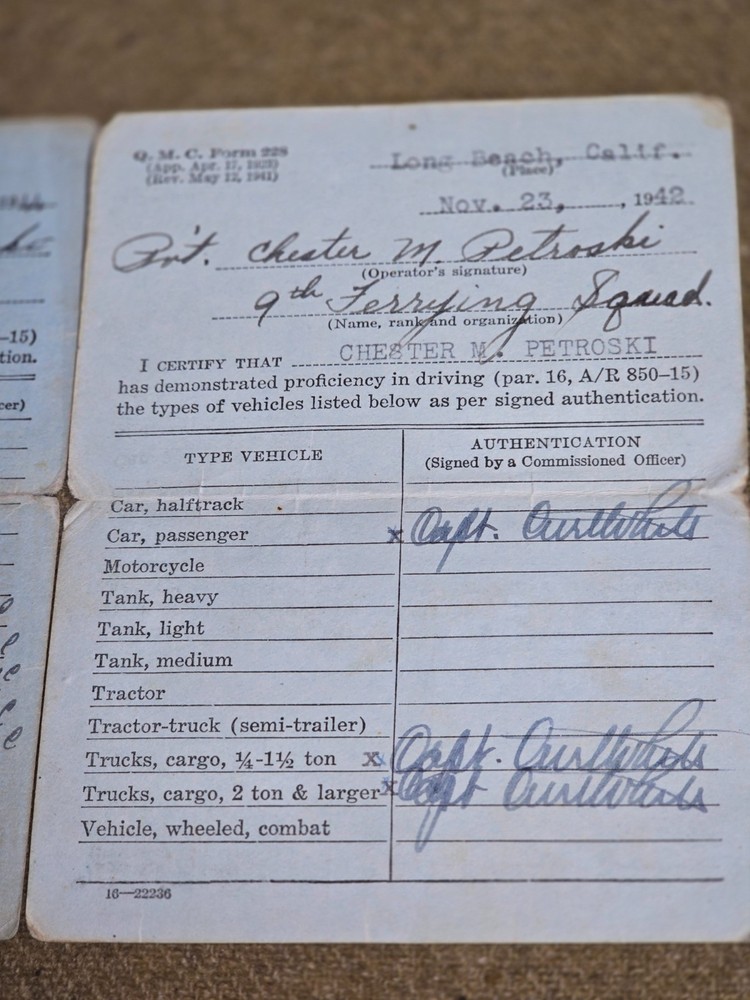 Q. M. C. Form 228
(App. Apr. 17, 1923)
(Rev. May 12, 1941)
Long Beach, Calif.
(Place)
Nov. 23, , 1942
Pvt. Chester M. Petroski
(Operator's signature)
9th Ferrying Squad.
(Name, rank and organization)
I CERTIFY THAT CHESTER M. PETROSKI
has demonstrated proficiency in driving (par. 16, A/R 850–15)
the types of vehicles listed below as per signed authentication.
TYPE VEHICLE
AUTHENTICATION
(Signed by a Commissioned Officer)
Car, halftrack
Car, passenger x Capt.
Motorcycle
Tank, heavy
Tank, light
Tank, medium
Tractor
Tractor-truck (semi-trailer)
Trucks, cargo, ¼-1½ ton x Capt.
Trucks, cargo, 2 ton & larger x Capt
Vehicle, wheeled, combat
16—22236
–15)
tion.
cer)